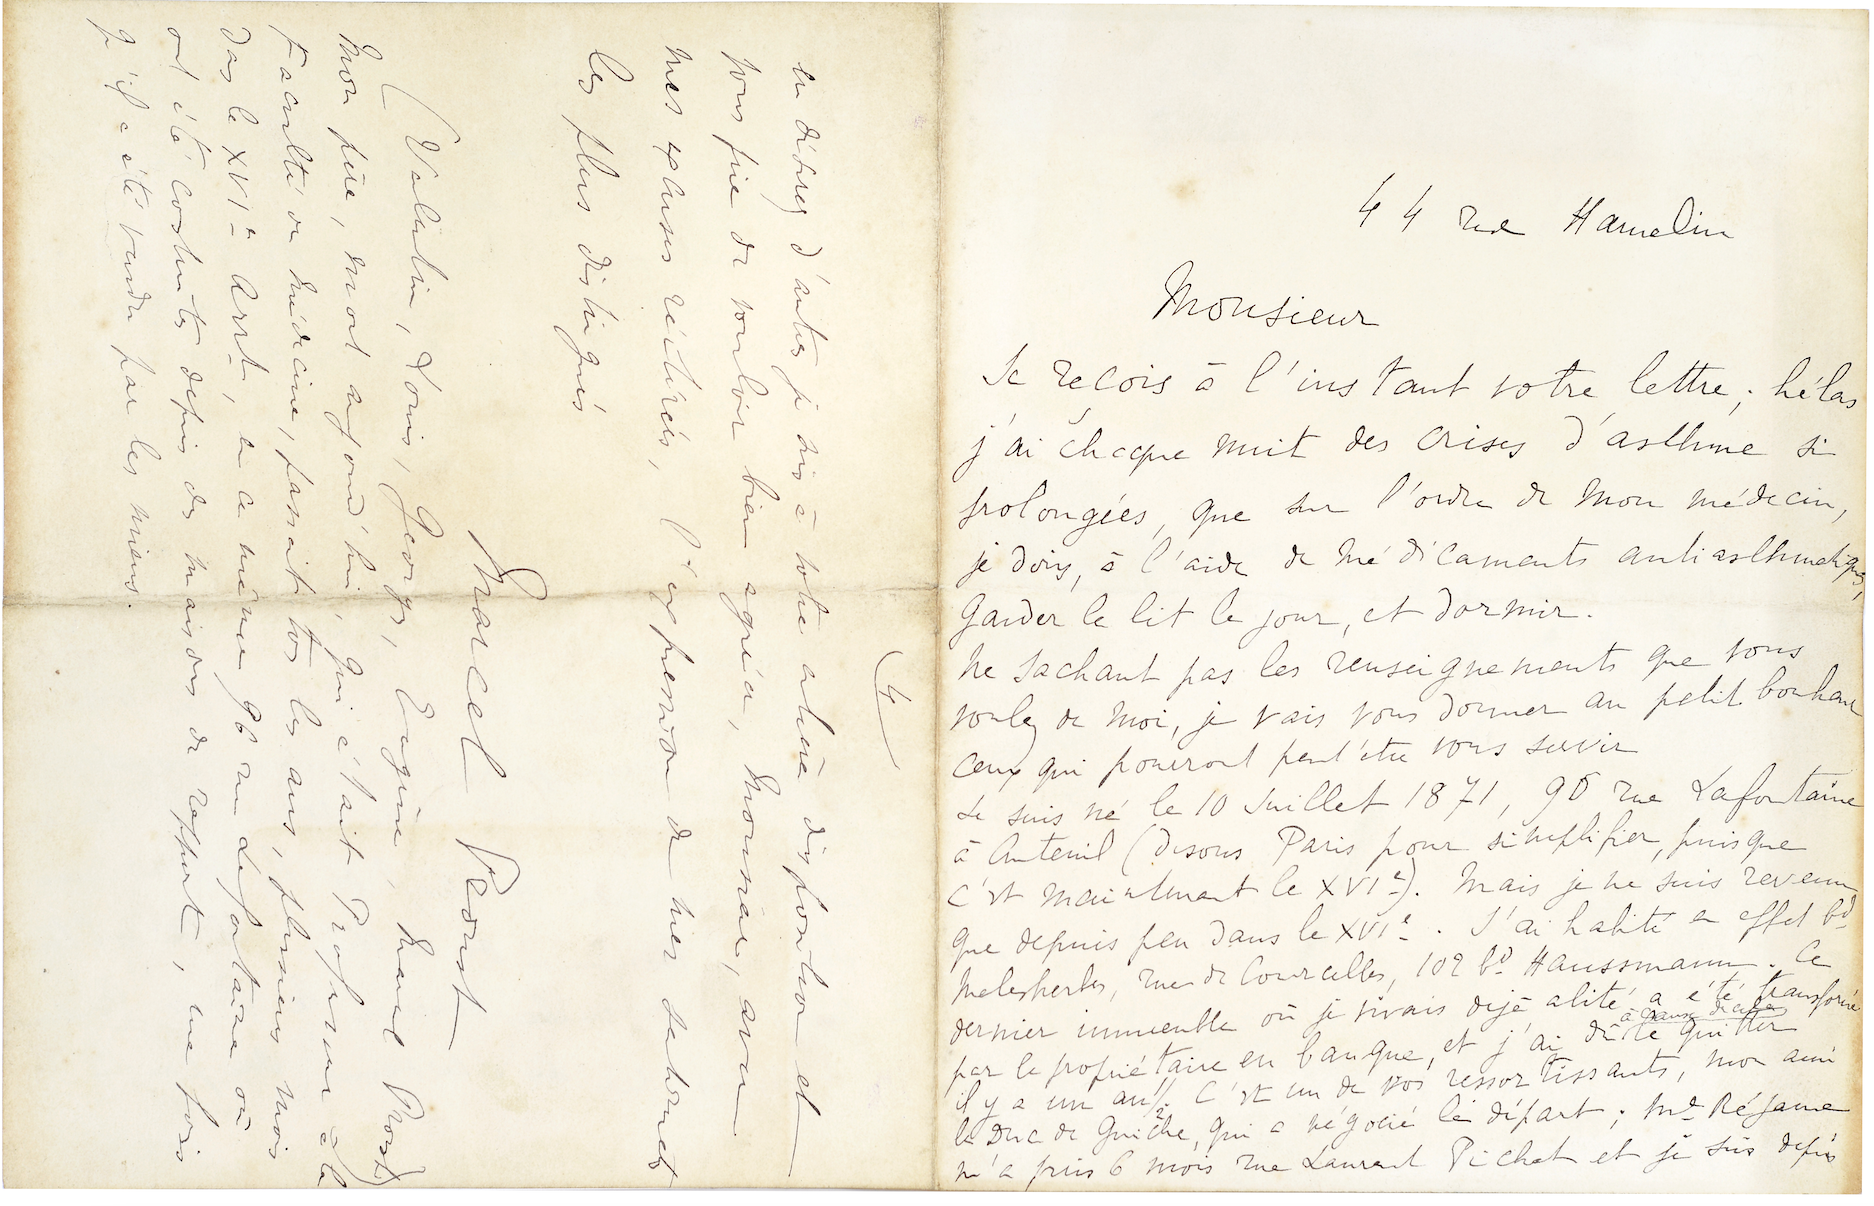 44 rue Hamelin
Monsieur
Je reçois à l'instant votre lettre ; hélas
j'ai chaque nuit des crises d'asthme si
prolongées, que sur l'ordre de mon médecin,
je dois, à l'aide de médicaments antiasthmatiques,
garder le lit le jour, et dormir.
Ne sachant pas les renseignements que vous
voulez de moi, je vais vous donner au petit bonheur
ceux qui pourront peut'être vous servir
Je suis né le 10 Juillet 1871, 96 rue Lafontaine
à Auteuil (disons Paris pour simplifier, puisque
c'est maintenant le XVIe). Mais je ne suis revenu
que depuis peu dans le XVIe. J'ai habité en effet bd
Malesherbes, rue de Courcelles, 102 bd Haussmann. Ce
dernier immeuble où je vivais déjà alité, a été transformé
par le propriétaire en banque, et j'ai dû le quitter
à cause de cela
il y a un an 1/2. C'est un de vos ressortissants, mon ami
le Duc de Guiche, qui a négocié le départ ; Me Réjane
m'a pris 6 mois rue Laurent Pichat et je suis depuis
(4)
en désirez d'autres je suis à votre entière disposition et
vous prie de vouloir bien agréer, Monsieur, avec
mes excuses réitérées, l'expression de mes sentiments
les plus distingués
Marcel Proust
(Valentin, Louis, Georges, Eugène, Marcel Proust)
Mon père, mort aujourd'hui, qui était Professeur à la
Faculté de Médecine, passait tous les ans, plusieurs mois
dans le XVIe Arrt, en ce même 96 rue Lafontaine où
ont été construites depuis des maisons de rapport, une fois
qu'il a été vendu par les miens.